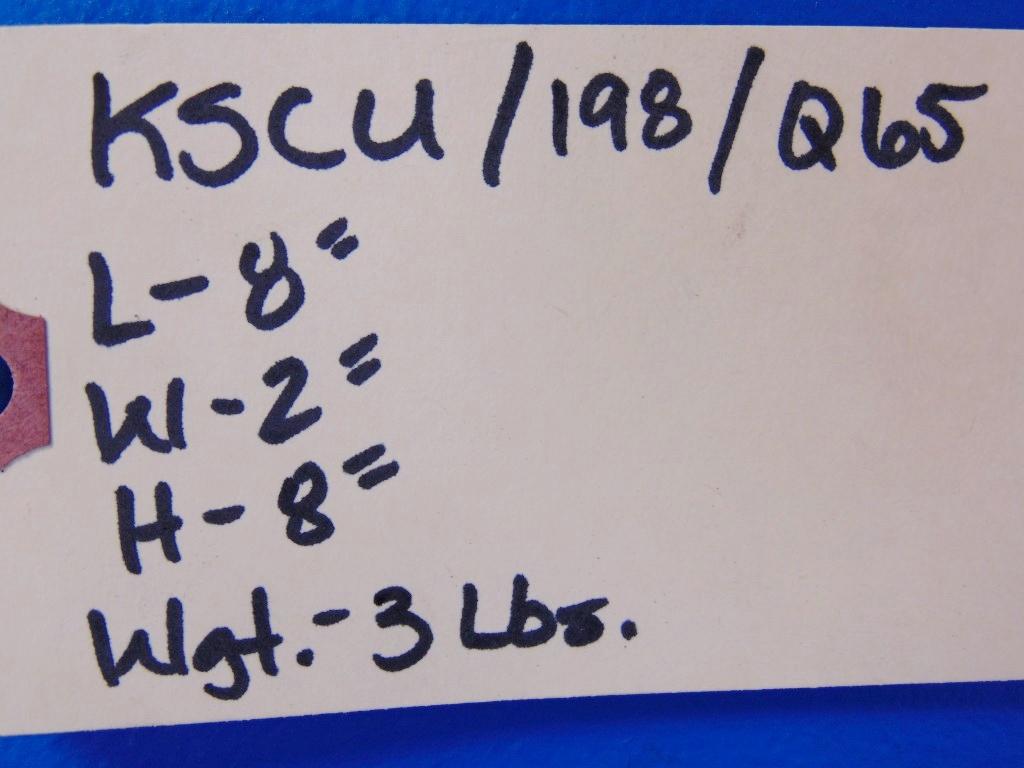 KSCU/198/Q65
L-8"
W-2"
H-8"
Wgt.-3 Lbs.